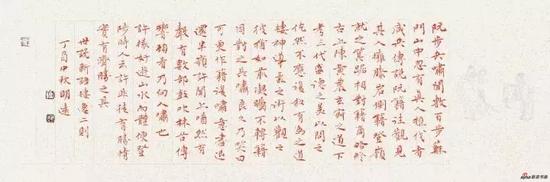 阮步兵嘯聞數百步蘇
門山中忽有真人樵伐者
咸共傳說阮籍往觀見
其人擁膝岩側籍登嶺
就之箕踞相對籍商略終
古上陳黃農玄寂之道下
考三代盛德之美以問之
仡然不應復敘有為之教
棲神導氣之術以觀之
彼猶如前凝矚不轉籍
因對之長嘯良久乃笑曰
可更作籍復嘯意盡退
還半嶺許聞上然有
聲如數部鼓吹林谷傳
響顧看乃向人嘯也
許掾好遊山水而體便登
陟時人云許非徒有勝情
實有濟勝之具
世說新語棲逸二則
丁酉中秋明遠